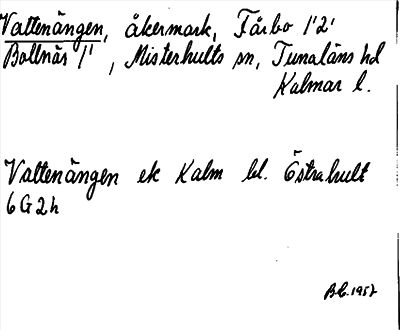 Vattenängen, åkermark, Fårbo 1'2'
Bollnäs 1', Misterhults sn, Tunaläns hd
Kalmar l.
Vattenängen ek Kalm bl. Östrahult
6G2h
1957